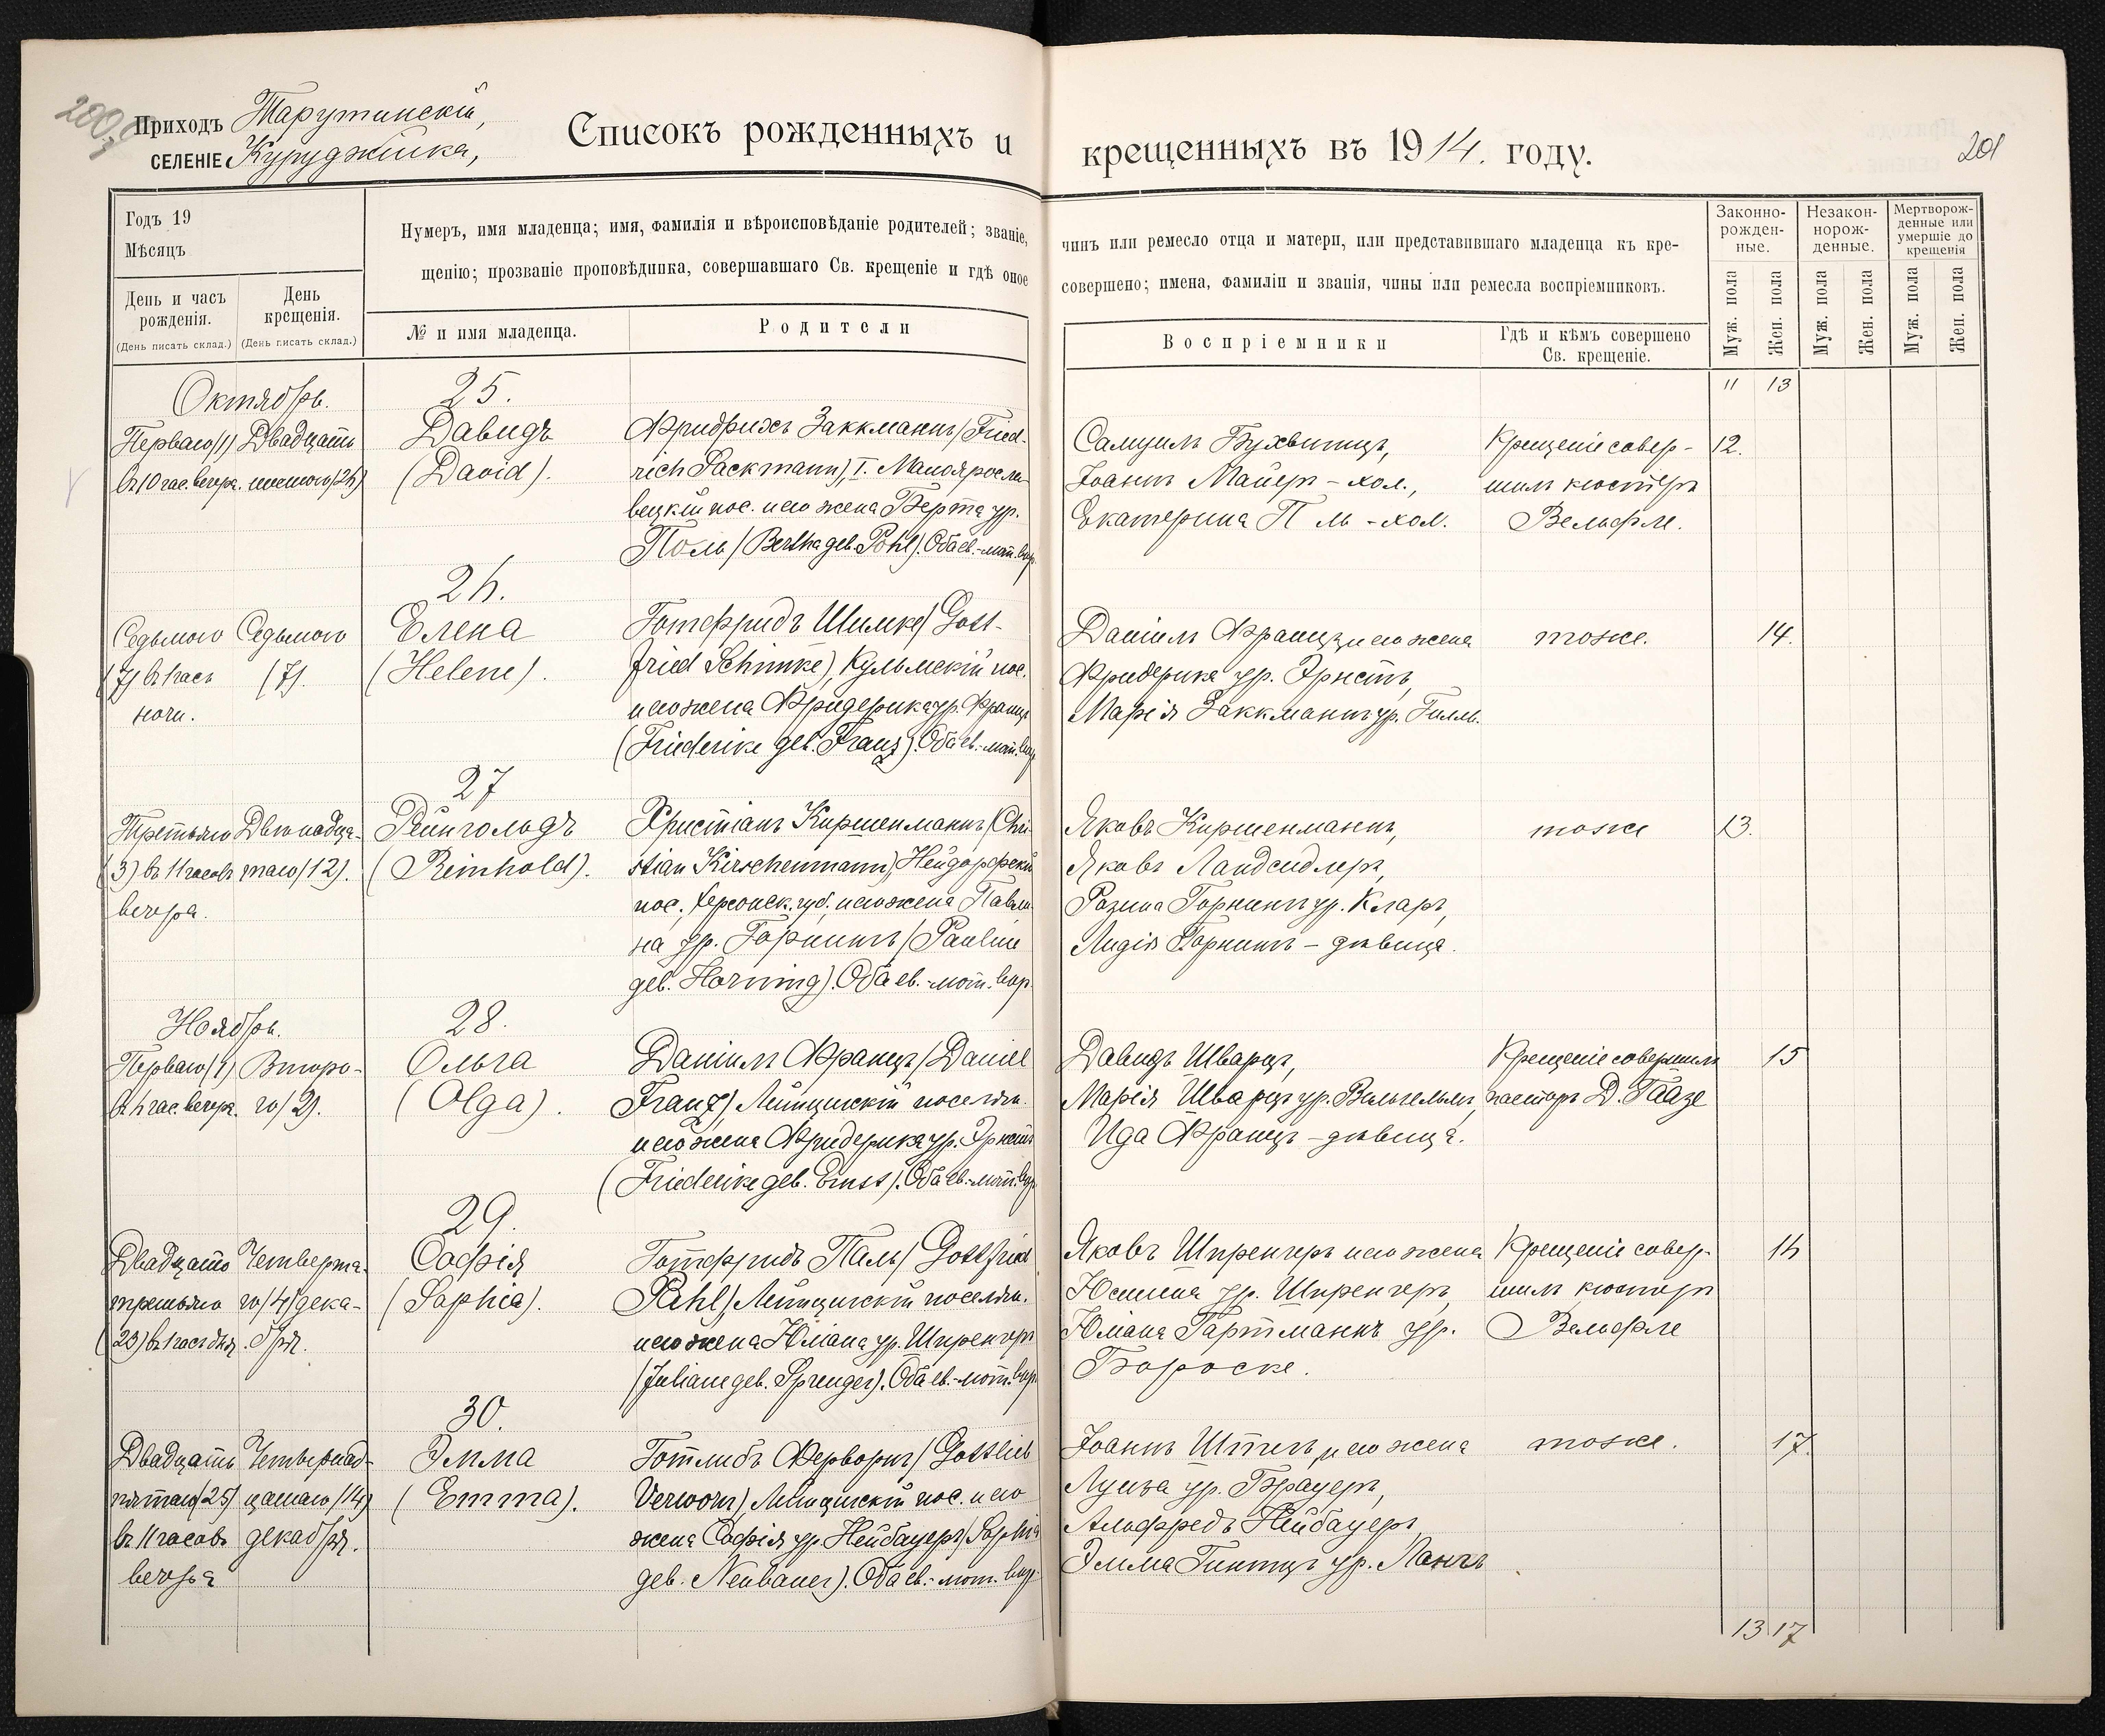 200
Приходъ Тарутинскій,
СЕЛЕНІЕ Куруджійка,
Списокъ рожденныхъ и
крещенныхъ въ 1914. году.
201
Годъ 19
Мѣсяцъ
День и часъ рожденія.
(День писать склад.)
День крещенія.
(День писать склад.)
Нумеръ, имя младенца; имя, фамилія и вѣроисповѣданіе родителей; званіе,
щенію; прозваніе проповѣдника, совершавшаго Св. крещеніе и гдѣ оное
№ и имя младенца.
Родители
чинъ или ремесло отца и матери, или представившаго младенца къ кре-
совершено; имена, фамиліи и званія, чины или ремесла воспріемниковъ.
Воспріемники
Гдѣ и кѣмъ совершено
Св. крещеніе.
Законно-
рожден-
ные.
Незакон-
норож-
денные.
Мертворож-
денные или
умершіе до
крещенія
Муж. пола
Жен. пола
Муж. пола
Жен. пола
Муж. пола
Жен. пола
11 13
Октябрь.
Перваго (1)
въ 10 час. вечера.
Двадцать
шестого (26)
25.
Давидъ
(David).
Фридрихъ Заккманнъ (Fried-
rich Sackmann), I. Малояросла-
вецкій пос. и его жена Берта ур.
Поль (Bertha geb. Pohl). Оба ев.-лют. вѣр.
Самуилъ Бухвитцъ,
Іоаннъ Майеръ - хол.,
Екатерина П ль - хол.
Крещеніе совер-
шилъ кюстеръ
Вельфле.
12.
Седьмого
(7) въ 1 часъ
ночи.
Седьмого
(7).
26.
Елена
(Helene).
Готфридъ Шимке (Gott-
fried Schimke), Кульмскій пос.
и его жена Фридерика ур. Францъ
(Friederike geb. Franz). Оба ев.-лют. вѣр.
Даніилъ Францъ и его жена
Фридерика ур. Эрнстъ,
Марія Заккманнъ ур. Гилль.
тоже.
14.
Третьяго
(3) въ 11 часовъ
вечера.
Двѣнадца-
таго (12).
27
Рейнгольдъ
(Reinhold).
Христіанъ Киршенманнъ (Chri-
stian Kirschenmann), Нейдорфскій
пос. Херсонск. губ. и его жена Павли-
на ур. Горнингъ (Pauline
geb. Horning). Оба ев.-лют. вѣр.
Яковъ Киршенманнъ,
Яковъ Ландсидлеръ,
Розина Горнингъ ур. Кларъ,
Лидія Горнингъ - дѣвица.
тоже
13.
Ноябрь.
Перваго (1)
въ 6 час. вечера.
Второ-
го (2).
28.
Ольга
(Olga).
Даніилъ Францъ (Daniel
Franz), Лейпцигскій поселян.
и его жена Фридерика ур. Эрнстъ
(Friederike geb. Ernst). Оба ев.-лют. вѣр.
Давидъ Шварцъ,
Марія Шварцъ ур. Вильгельмъ,
Ида Францъ - дѣвица.
Крещеніе совершилъ
пасторъ Д. Гаазе
15
Двадцать
третьяго
(23) въ 1 часъ дня.
Четверта-
го (4) дека-
бря.
29.
Софія
(Sophia).
Готфридъ Паль (Gottfried
Pahl) Лейпцигскій поселян.
и его жена Юліана ур. Шпренгеръ
(Juliane geb. Sprenger). Оба ев.-лют. вѣр.
Яковъ Шпренгеръ и его жена
Юстина ур. Шпренгеръ
Юліана Гартманнъ ур.
Бороске.
Крещеніе совер-
шилъ кюстеръ
Вельфле
16
Двадцать
пятаго (25)
въ 11 часовъ
вечера
Четырнад-
цатаго (14)
декабря.
30.
Эмма
(Emma).
Готлибъ Ферворнъ (Gottlieb
Verworn), Лейпцигскій пос. и его
жена Софія ур. Нейбауеръ (Sophia
geb. Neubauer). Оба ев.-лют. вѣр.
Іоаннъ Штигъ, и его жена
Луиза ур. Брауеръ,
Альфредъ Нейбауеръ,
Эмма Гинтцъ ур. Лангъ
тоже.
17.
13 17